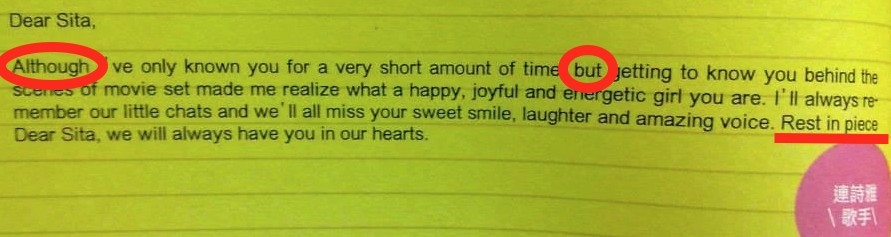 Dear Sita,
Although I've only known you for a very short amount of time but getting to know you behind the
scenes of movie set made me realize what a happy, joyful and energetic girl you are. I'll always re-
member our little chats and we'll all miss your sweet smile, laughter and amazing voice. Rest in piece
Dear Sita, we will always have you in our hearts.
連詩雅
\ 歌手 \